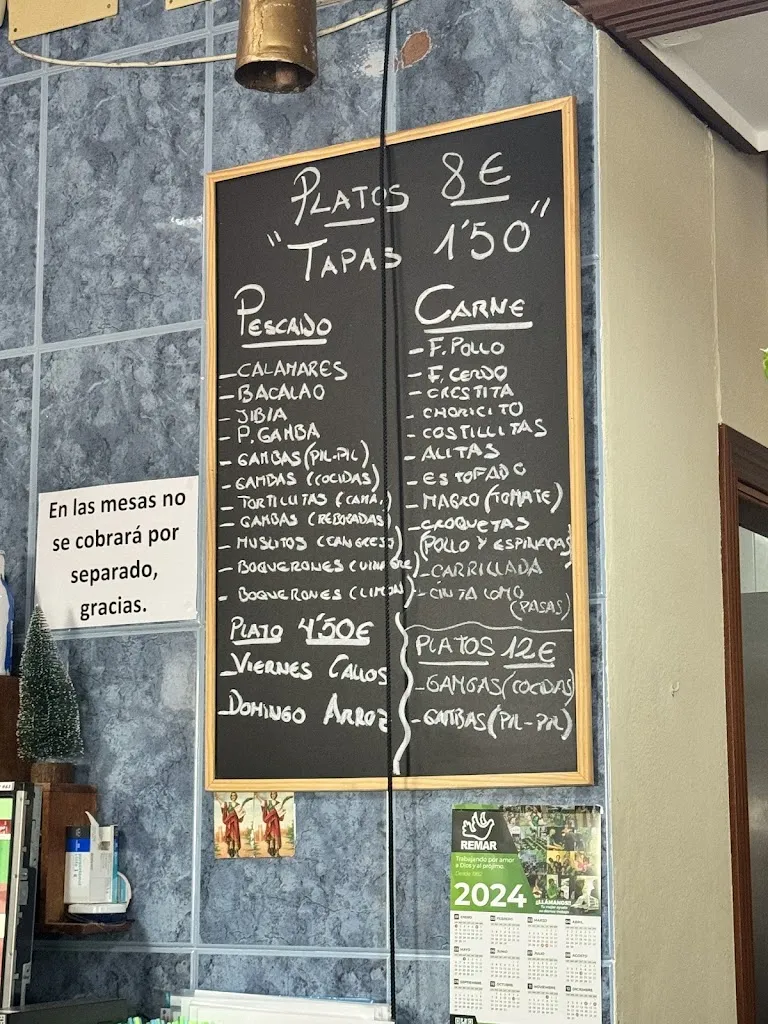 PLATOS 8€
"TAPAS 1'50"
PESCADO
- CALAMARES
- BACALAO
- JIBIA
- P. GAMBA
- GAMBAS (PIL-PIL)
- GAMBAS (COCIDAS)
- TORTILLITAS (CAMA.)
- GAMBAS (REBOZADAS)
- MUSLITOS (CANGREJO)
- BOQUERONES (VINAGRE)
- BOQUERONES (LIMON)
PLATO 4'50€
- VIERNES CALLOS
- DOMINGO ARROZ
CARNE
- F. POLLO
- F. CERDO
- CRESTITA
- CHORICITO
- COSTILLITAS
- ALITAS
- ESTOFADO
- MAGRO (TOMATE)
- CROQUETAS
(POLLO Y ESPINACAS)
- CARRILLADA
- CINTA LOMO
(PASAS)
PLATOS 12€
- GAMBAS (COCIDAS)
- GAMBAS (PIL-PIL)
En las mesas no
se cobrará por
separado,
gracias.
REMAR
Trabajando por amor
a Dios y al prójimo
2024
¡LLÁMANOS!